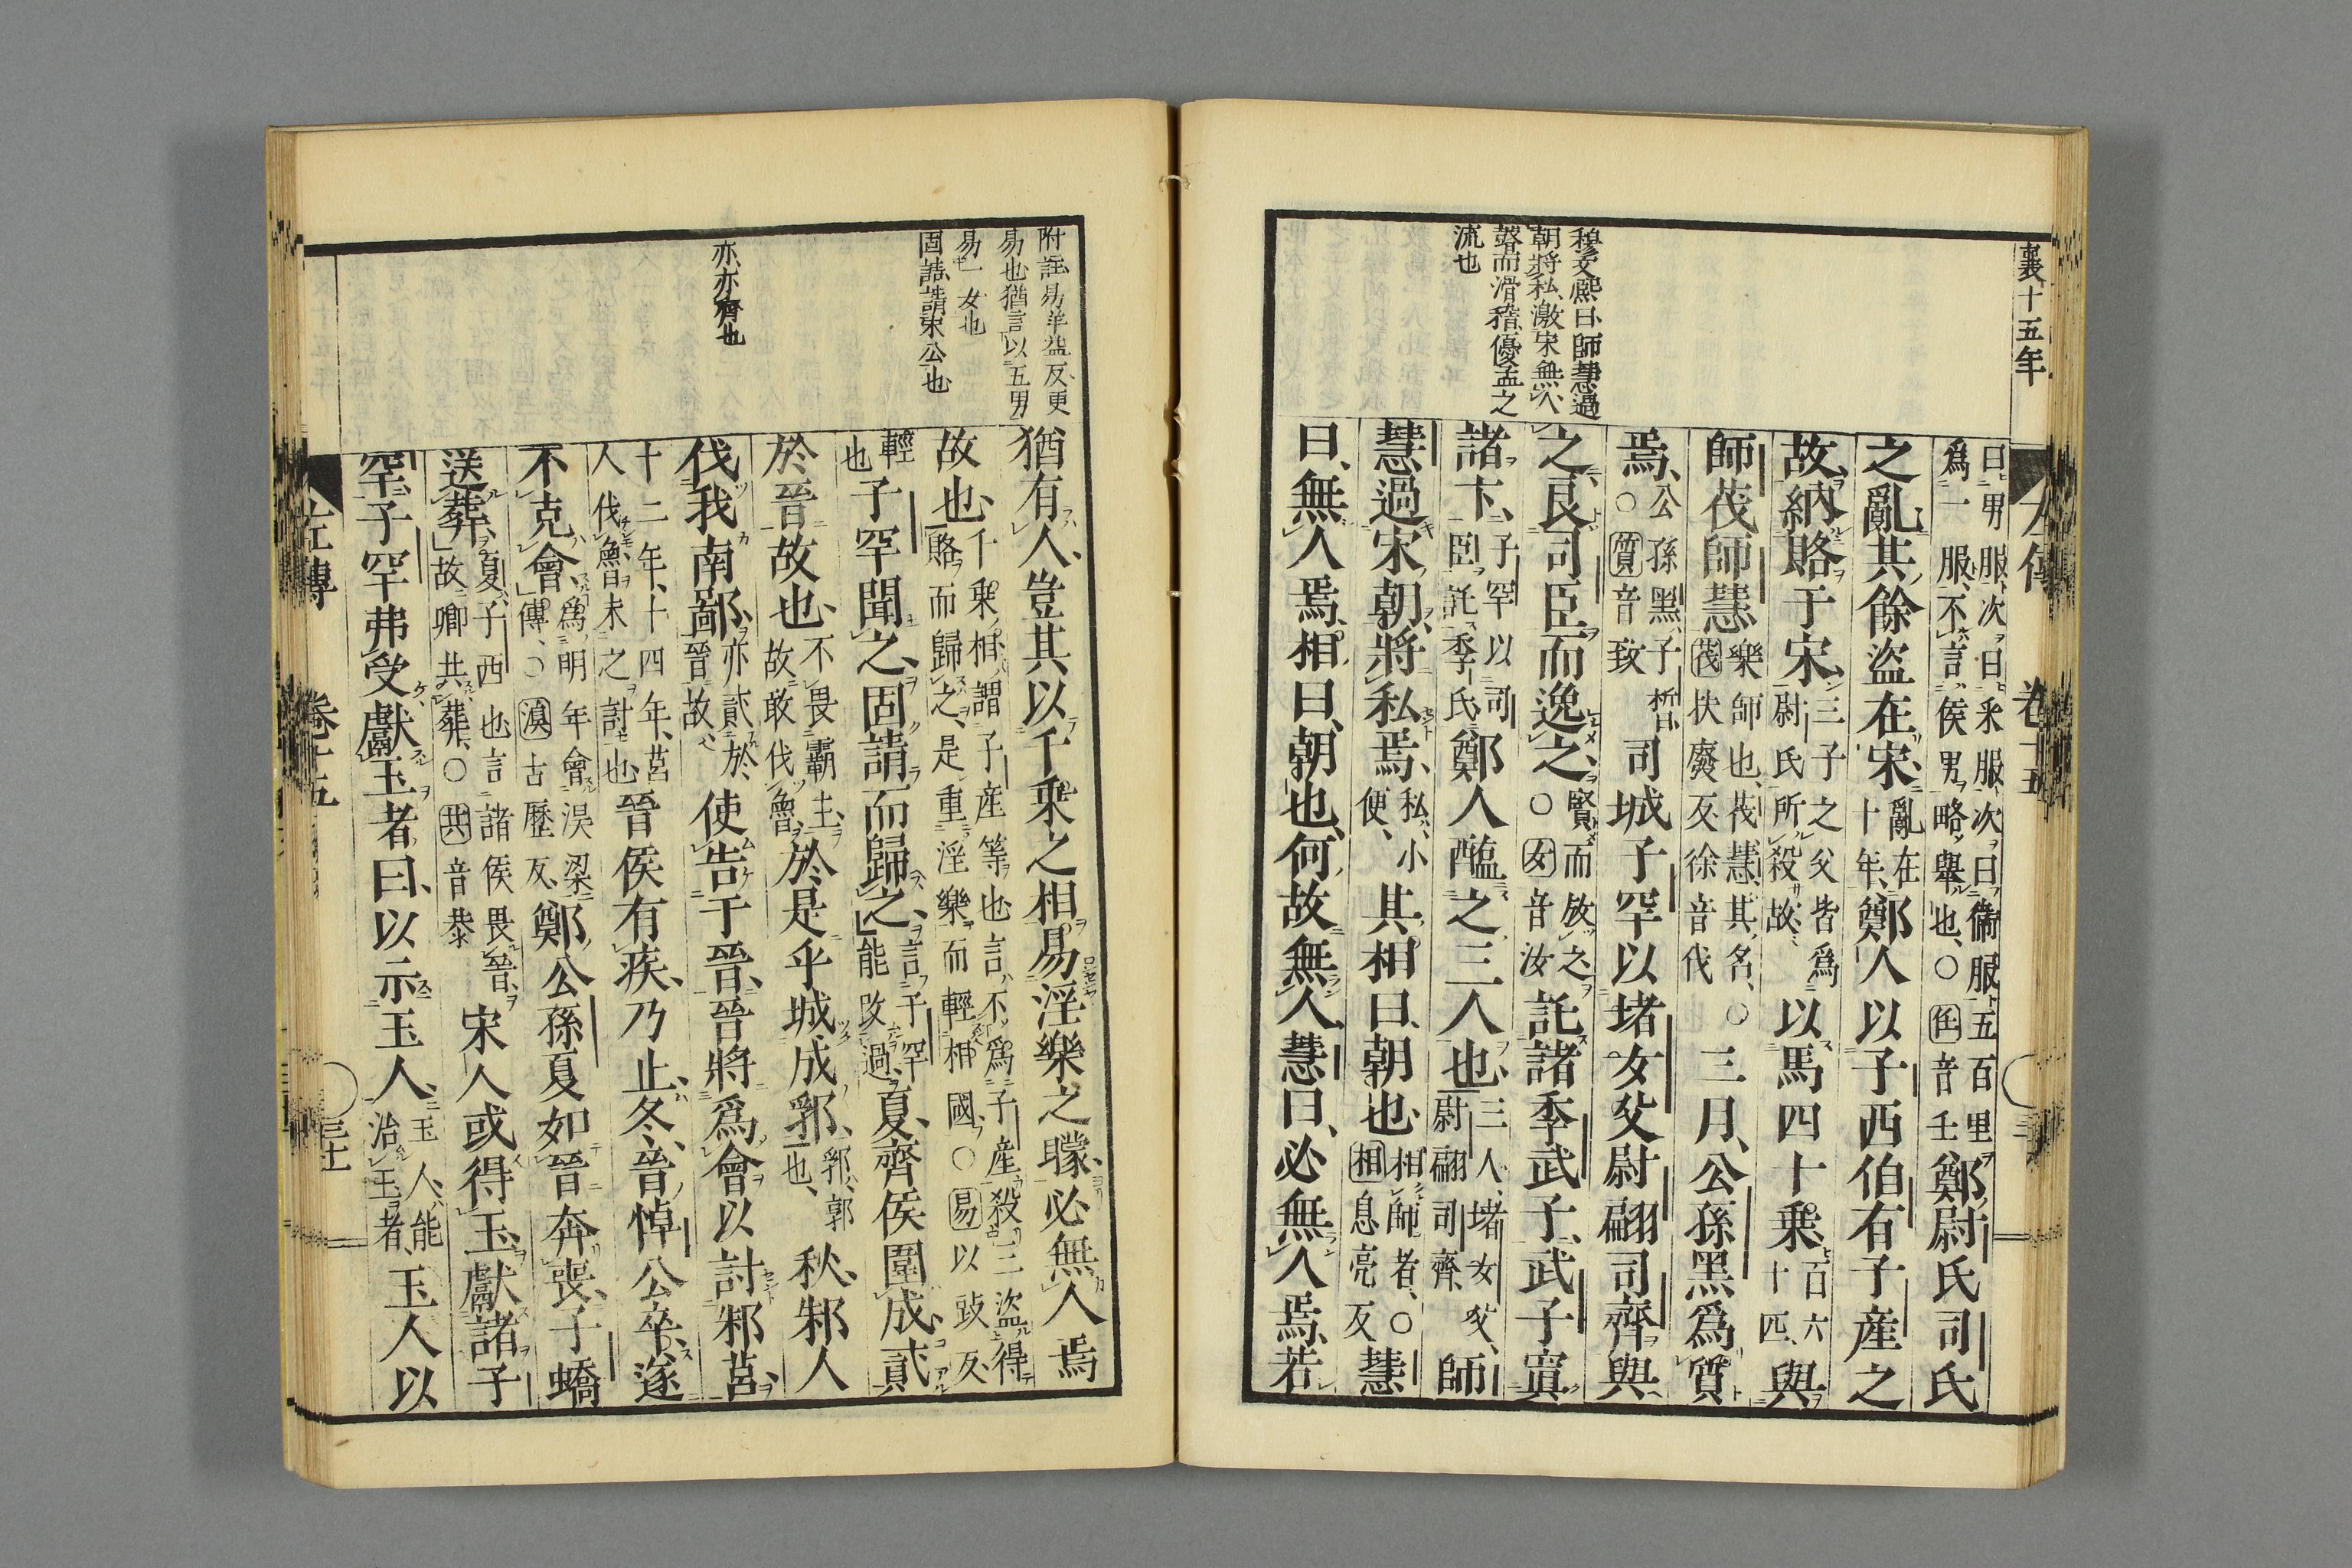 襄十五年
穆文熙曰師慧過
朝將私激宋無人
聲而滑稽優孟之
流也
曰男服次曰采服次曰衞服五百里爲一服不言侯男略舉也○任音壬鄭尉氏司氏
之亂其餘盜在宋亂在十年鄭人以子西伯有子產之
故納賂于宋三子之父皆爲尉氏所殺故以馬四十乘百六十匹與
師茷師慧樂師也茷慧其名○茷扶廢反徐音伐三月公孫黑爲質
焉公孫黑子晳○質音致司城子罕以堵女父尉翩司齊與
之良司臣而逸之賢而放之○女音汝託諸季武子武子寘
諸卞子罕以司臣託季氏鄭人醢之三人也三人堵女父尉翩司齊師
慧過宋朝將私焉私小便其相曰朝也相師者○相息亮反慧
曰無人焉相曰朝也何故無人慧曰必無人焉若
附註易羊益反更
易也猶言以五男
易一女也
固請請宋公也
亦亦齊也
猶有人豈其以千乘之相易淫樂之矇必無人焉
故也千乘相謂子產等也言不爲子產殺三盜得賂而歸之是重淫樂而輕相國○易以豉反
輕也子罕聞之固請而歸之言子罕能改過夏齊侯圍成貳
於晉故也不畏霸主故敢伐魯於是乎城成郛郛郭也秋邾人
伐我南鄙亦貳於晉故使告于晉晉將爲會以討邾莒
十二年十四年莒人伐魯未之討也晉侯有疾乃止冬晉悼公卒遂
不克會爲明年會湨梁傳○湨古歷反鄭公孫夏如晉奔喪子蟜
送葬夏子西也言諸侯畏晉故卿共葬○共音恭宋人或得玉獻諸子
罕子罕弗受獻玉者曰以示玉人玉人能治玉者玉人以
左傳 卷十五